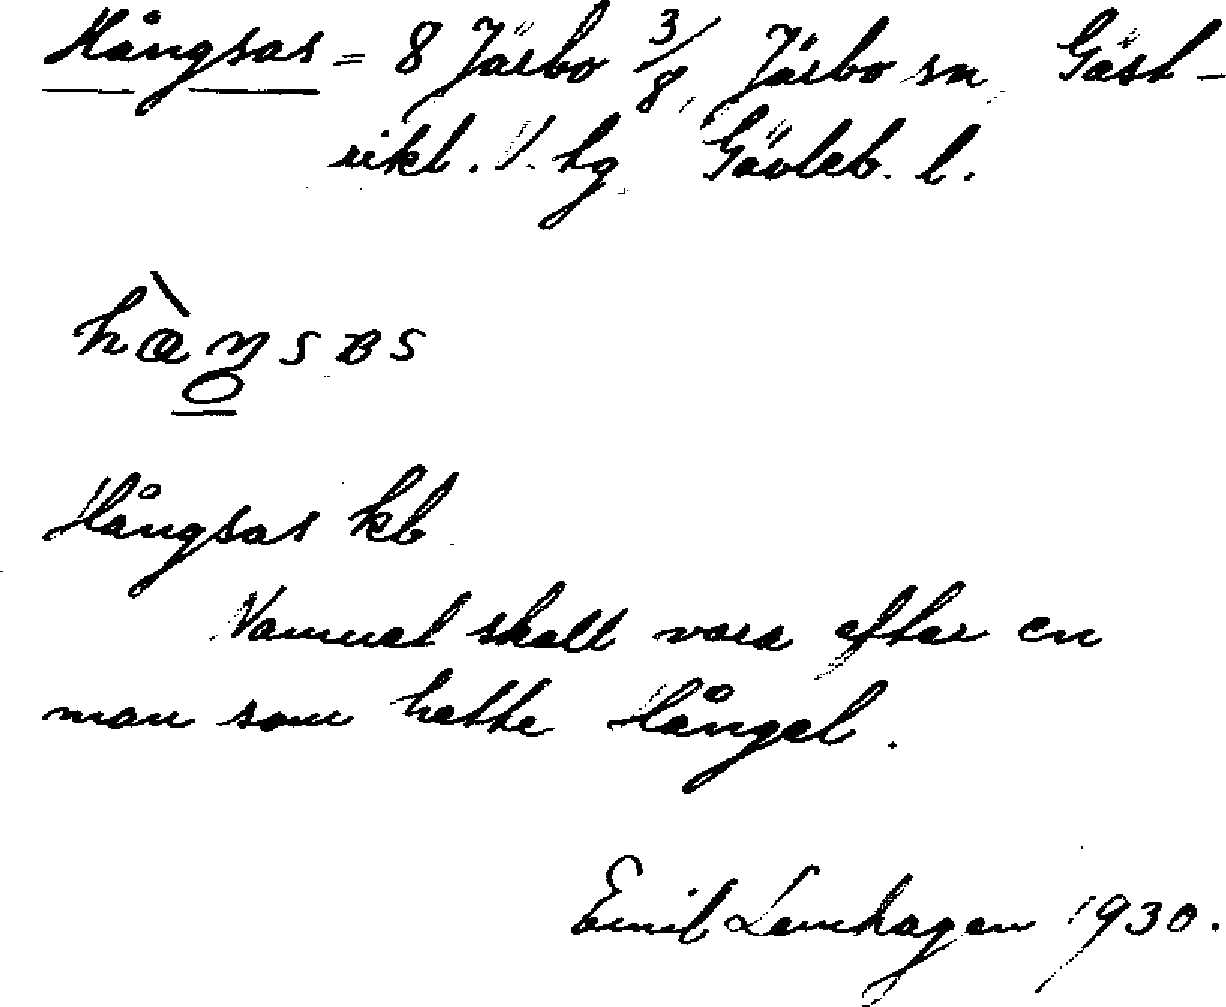 Hångsas = 8 Järbo 3/8, Järbo sn, Gäst-
rikl. V. hg Gävleb. l.
håŋsɒs
Hångsas kb
Namnet skall vara efter en
man som hette Hångel.
Emil Lemhagen 1930.